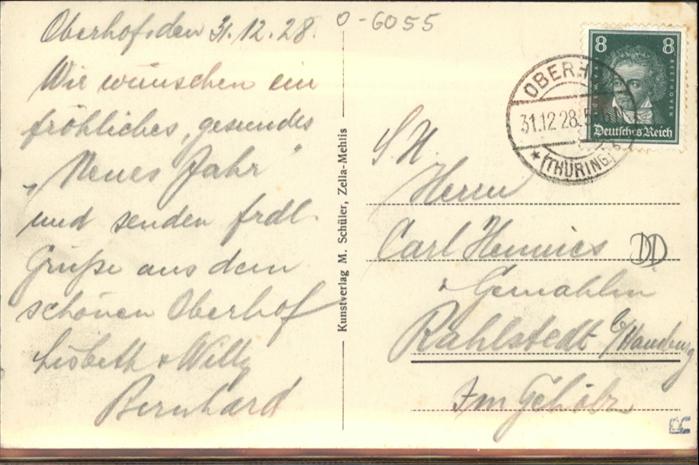 Oberhof, den 31.12.28.
Wir wünschen ein
fröhliches, gesundes
„Neues Jahr"
und senden frdl.
Grüße aus dem
schönen Oberhof
Lisbeth + Willy
Bernhard
O-6055
Kunstverlag M. Schüler, Zella-Mehlis
8 8
Deutsches Reich
OBERH
31.12.28.
* (THÜRING.)
Herrn
Carl Hennies
Gemahlin
Rahlstedt b/Hamburg
Im Gehölz